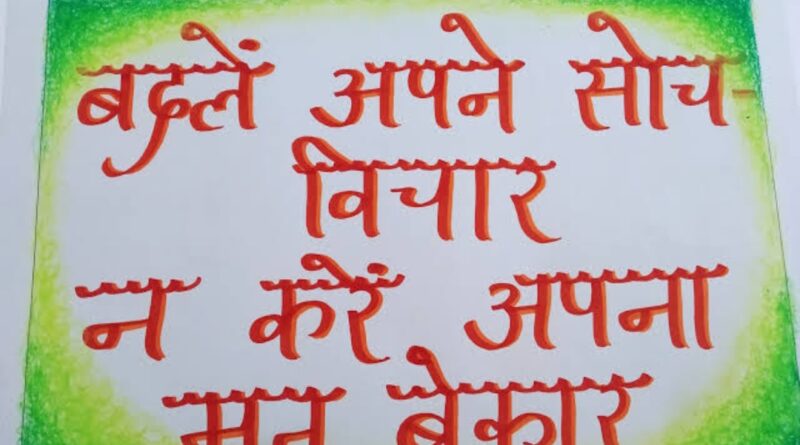 बदलें अपने सोच-
विचार
न करें अपना
मन बेकार